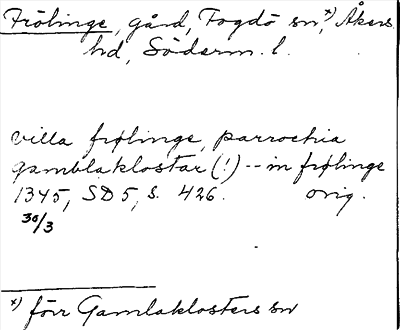 Frölinge, gård, Fogdö sn,*) Åkers
hd, Söderm. l.
villa frølinge, parrochia
gamblaklostar (!) -- in frølinge
1345, SD 5, s. 426. orig.
30/3
*) förr Gamlaklosters sn